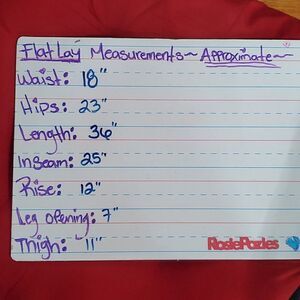 Flat Lay Measurements ~ Approximate ~
Waist: 18"
Hips: 23"
Length: 36"
Inseam: 25"
Rise: 12"
Leg opening: 7"
Thigh: 11"
RosiePozies